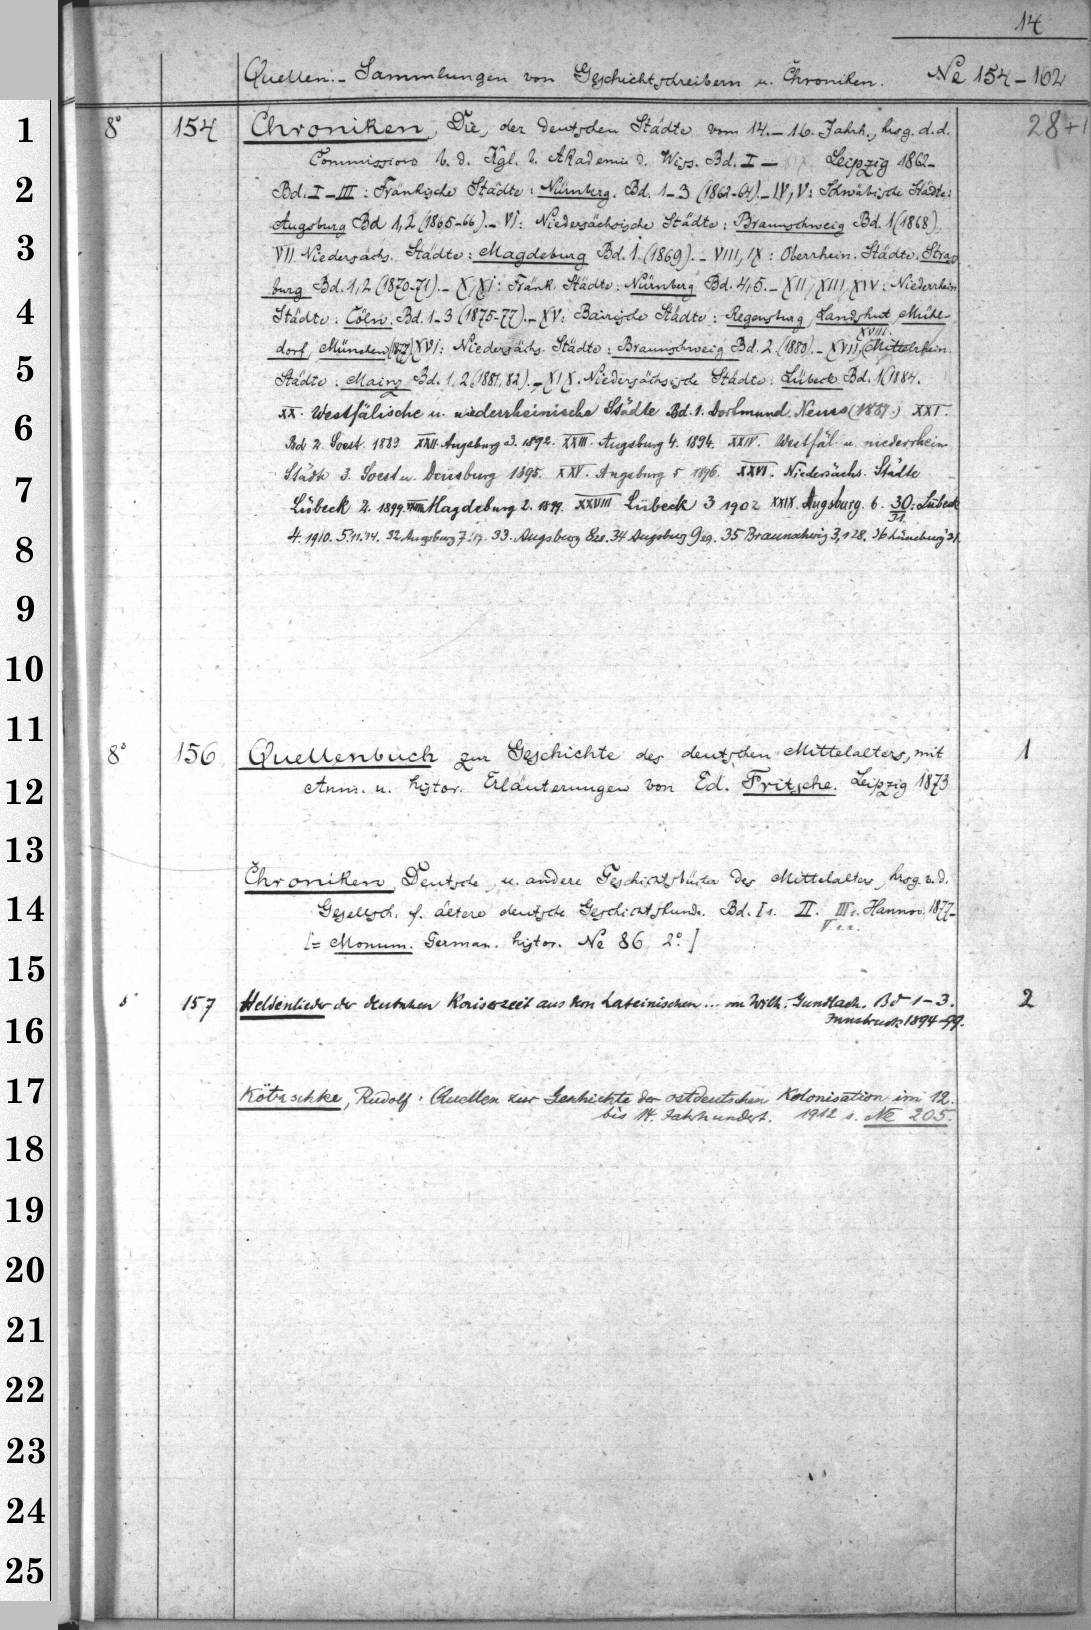 14
Quellen:- Sammlungen von Geschichtschreibern u. Chroniken. Ne 154-162
1 8° 154 Chroniken, Die, der deutschen Städte vom 14.-16. Jahrh., hrsg. d. d. 28+1
Commission b. d. Kgl. Akademie d. Wiss. Bd. I - Leipzig 1862-
2 Bd. I-III: Fränkische Städte: Nürnberg. Bd. 1-3 (1862-64).- IV, V: Schwäbische Städte:
Augsburg Bd 1,2 (1865-66).- VI: Niedersächsische Städte: Braunschweig Bd. 1 (1868),
3 VII Niedersächs. Städte: Magdeburg Bd. 1. (1869).- VIII, IX: Oberrhein. Städte. Stras
burg Bd. 1,2 (1870-71).- X, XI: Fränk. Städte: Nürnberg Bd. 4,5.- XII, XIII, XIV: Niederrhein
4 Städte: Cöln. Bd. 1-3 (1875-77).- XV: Bairische Städte: Regensburg, Landshut, Mühl-
XVIII.
dorf, München (1877) XVI: Niedersächs. Städte: Braunschweig Bd. 2. (1880).- XVII, (Mittelrhein.
5 Städte: Mainz Bd. 1,2 (1881, 82).- XIX. Niedersächsische Städte: Lübeck Bd. 1 (1884.
6 XX. Westfälische u. niederrheinische Städte Bd. 1. Dortmund, Neuss (1887.) XXI.
Bd 2. Soest. 1889. XXII. Augsburg 3. 1892. XXIII. Augsburg 4. 1894. XXIV. Westfäl. u. niederrhein
Städte 3. Soest u. Duisburg 1895. XXV. Augsburg 5 1896. XXVI. Niedersächs. Städte
7 Lübeck 2. 1899. XXVII Magdeburg 2. 1899. XXVIII Lübeck 3 1902 XXIX. Augsburg. 6. 30. Lübeck
31.
8 4. 1910. 5. 11. '14. 32 Augsburg 7. '17. 33. Augsburg 8 34 Augsburg 9 29. 35 Braunschweig 3,1 28. 36 Lüneburg '31.
9
10
11 8° 156 Quellenbuch zur Geschichte des deutschen Mittelalters, mit 1
12 Anm. u. histor. Erläuterungen von Ed. Fritsche. Leipzig 1873
13
Chroniken, Deutsche, u. andere Geschichtsbücher des Mittelalters, hrsg. v. d.
14 Gesellsch. f. ältere deutsche Geschichtskunde. Bd. I 1. II. III 1. Hannov. 1877-
V. 1. 2.
[= Monum. German. histor. Ne 86 2°.]
15
8° 157 Heldenlieder der deutschen Kaiserzeit aus dem Lateinischen ... von Wilh. Gundlach. Bd 1-3. 2
16 Innsbruck 1894-99.
17 Kötzschke, Rudolf: Quellen zur Geschichte der ostdeutschen Kolonisation im 12.
bis 14. Jahrhundert. 1912 s. Ne 205.
18
19
20
21
22
23
24
25